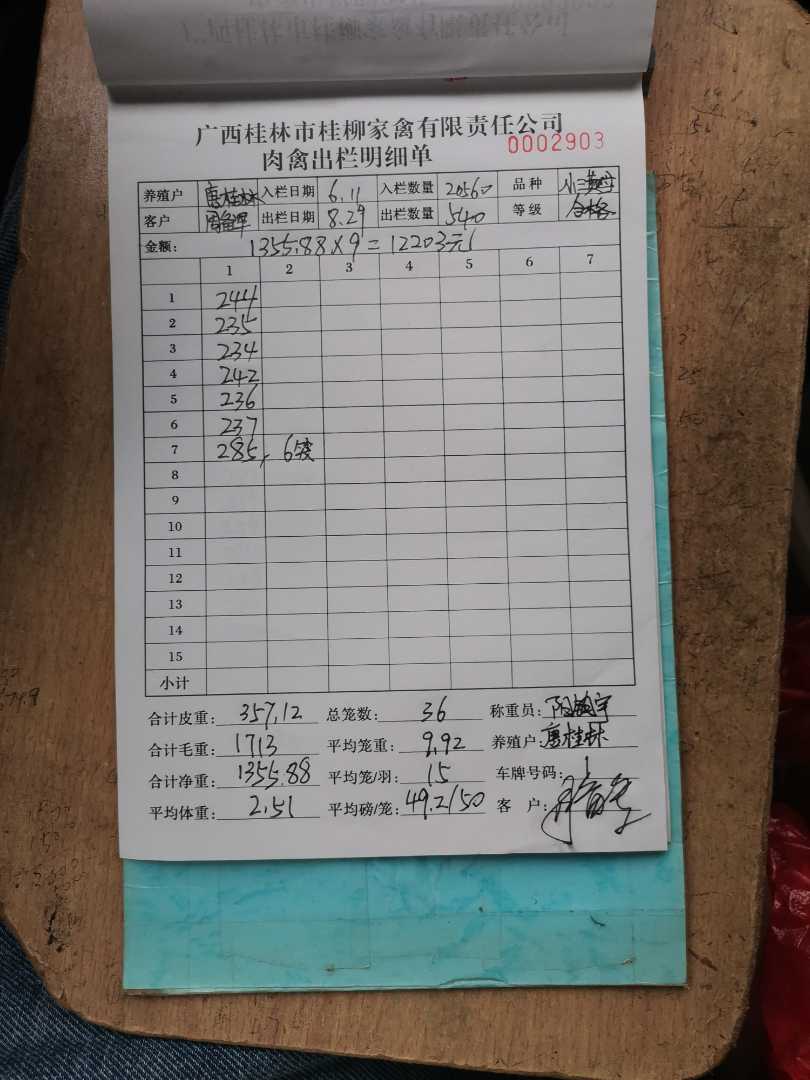 广西桂林市桂柳家禽有限责任公司
肉禽出栏明细单 0002903
养殖户 唐桂林 入栏日期 6.11 入栏数量 20560 品种
客户 出栏日期 8.29 出栏数量 540 等级 合格
金额: 1355.88×9=12203元
1 2 3 4 5 6 7
1 244
2 235
3 234
4 242
5 236
6 237
7 285, 6
8
9
10
11
12
13
14
15
小计
合计皮重: 357.12 总笼数: 36 称重员:
合计毛重: 1713 平均笼重: 9.92 养殖户: 唐桂林
合计净重: 1355.88 平均笼/羽: 15 车牌号码:
平均体重: 2.51 平均磅/笼: 49.2/50 客 户: